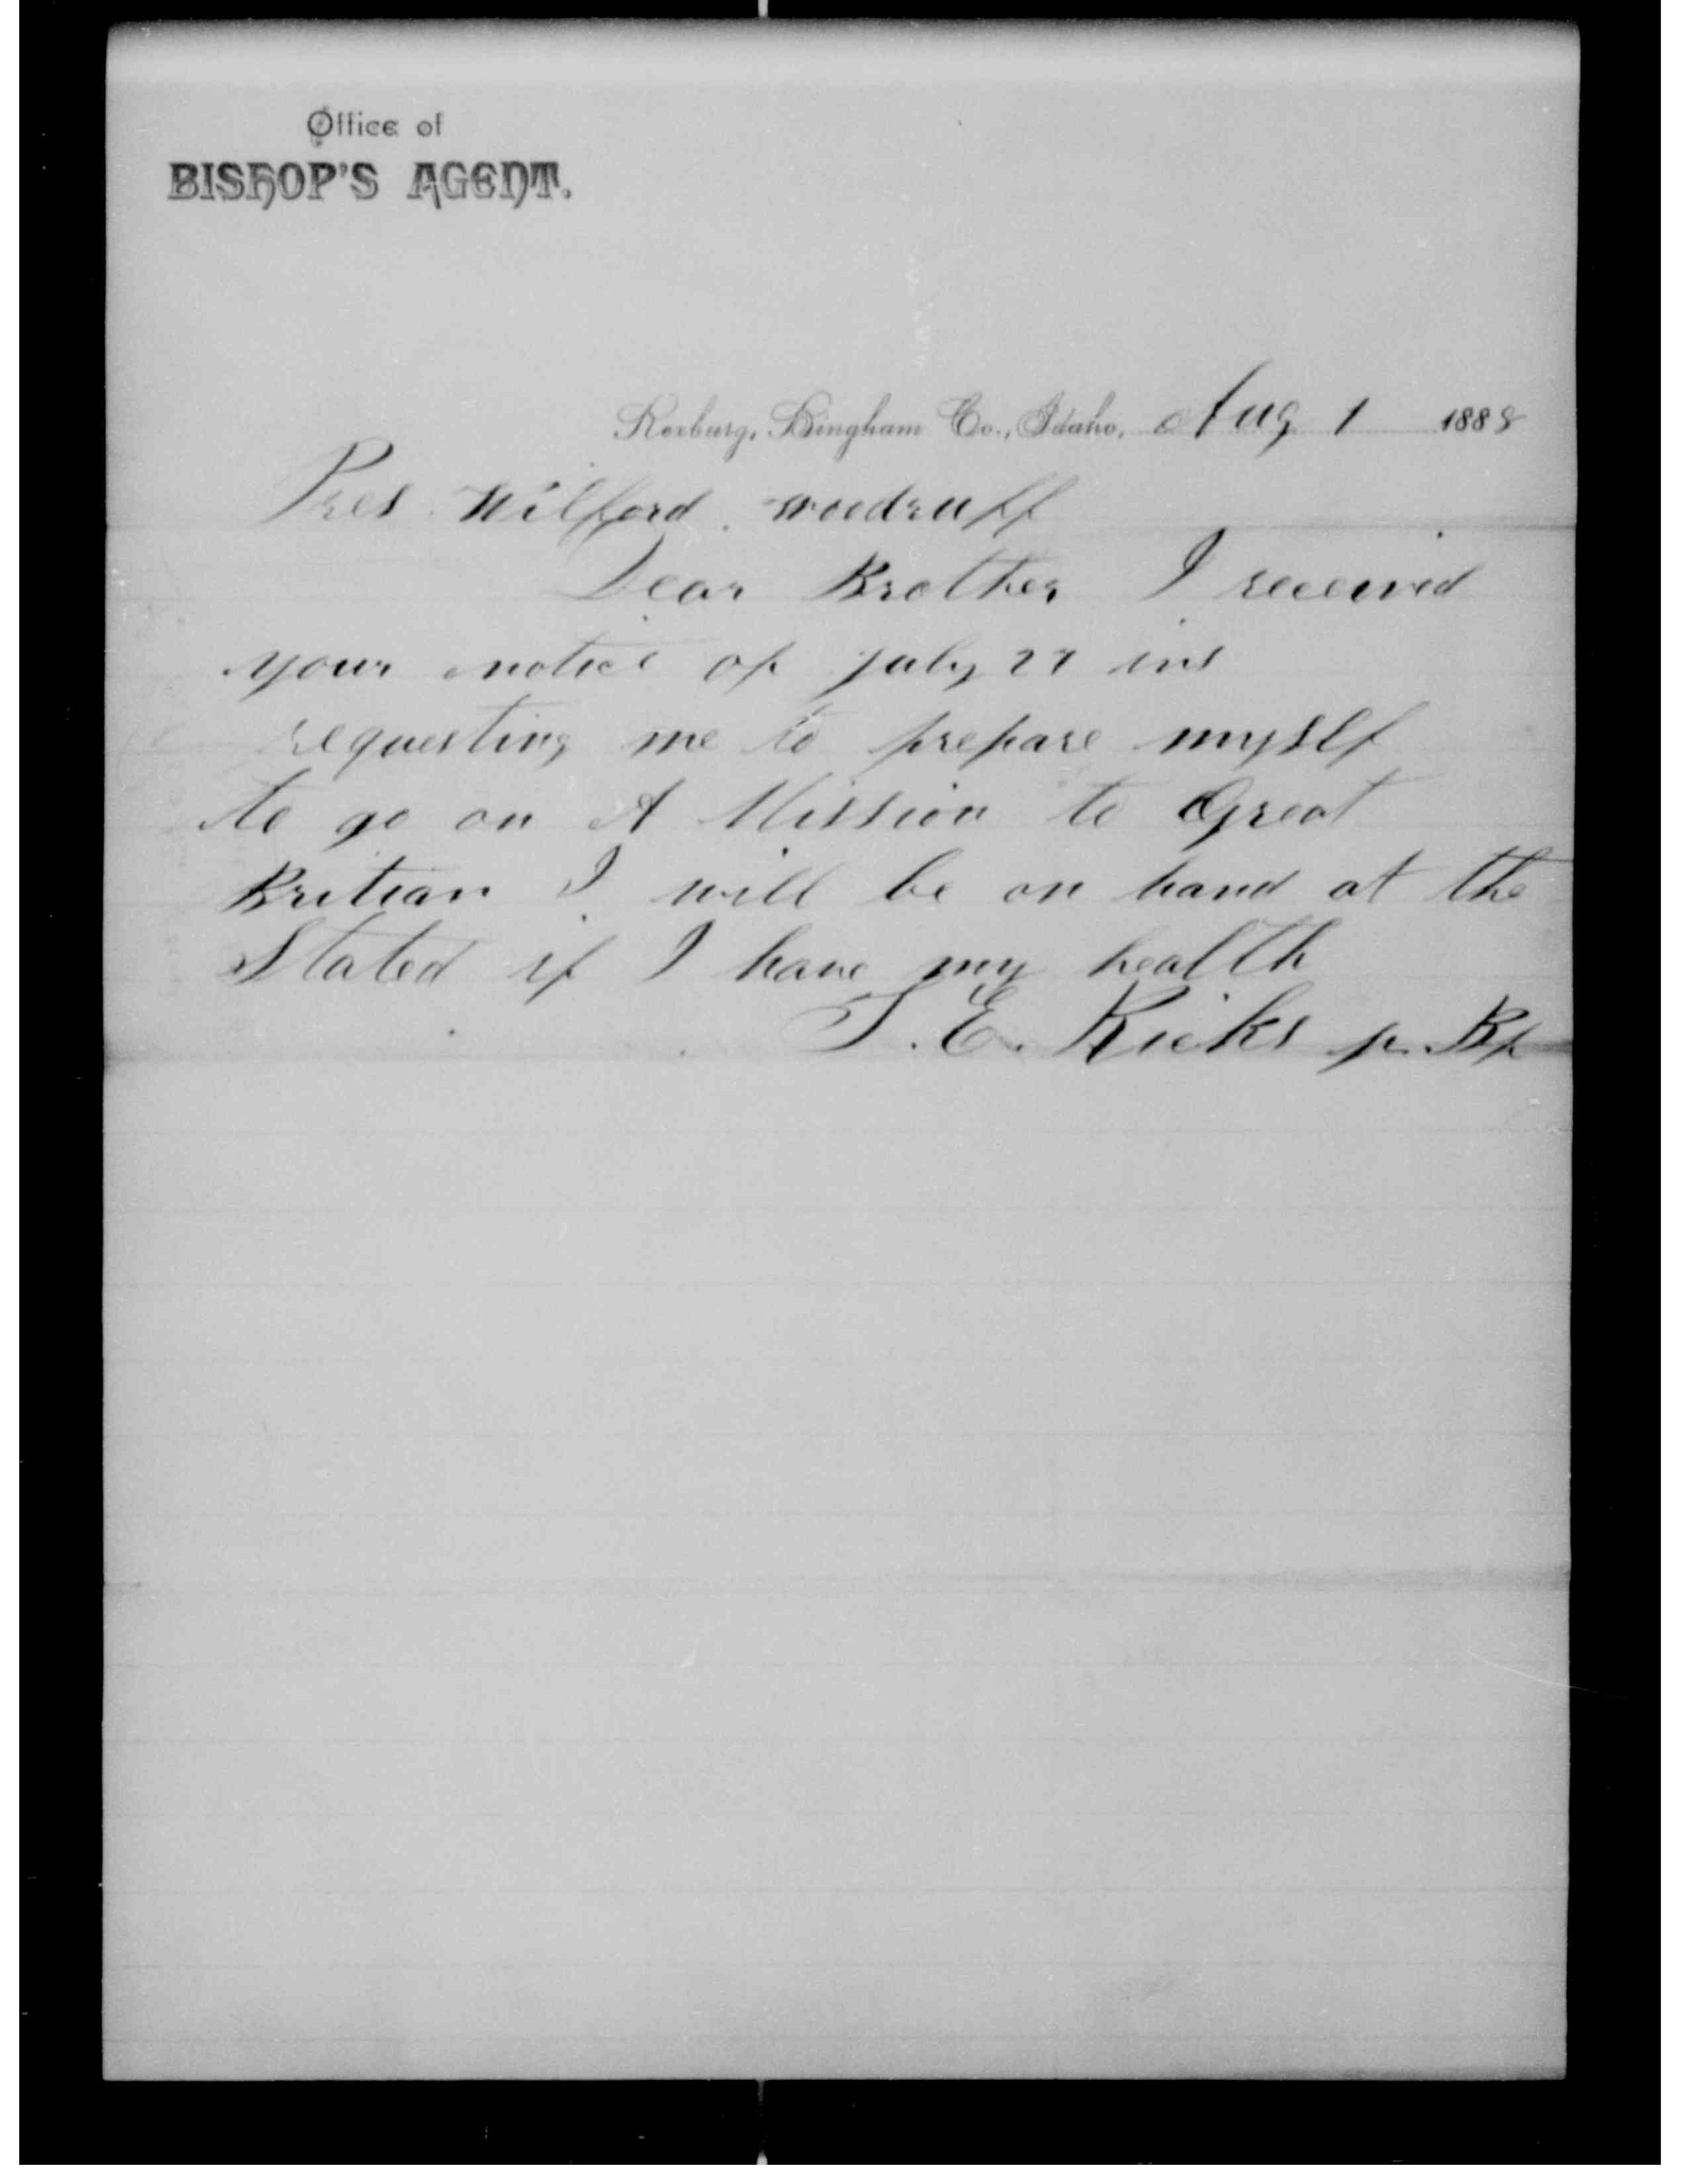 Office of
BISHOP'S AGENT.
Rexburg, Bingham Co., Idaho, Aug 1 1888
Pres. Wilford. Woodruff
Dear Brother I received
your notice of July 27 ins
requesting me to prepare myself
to go on A Mission to Great
Britian I will be on hand at the
Stated if I have my health
T. E. Ricks